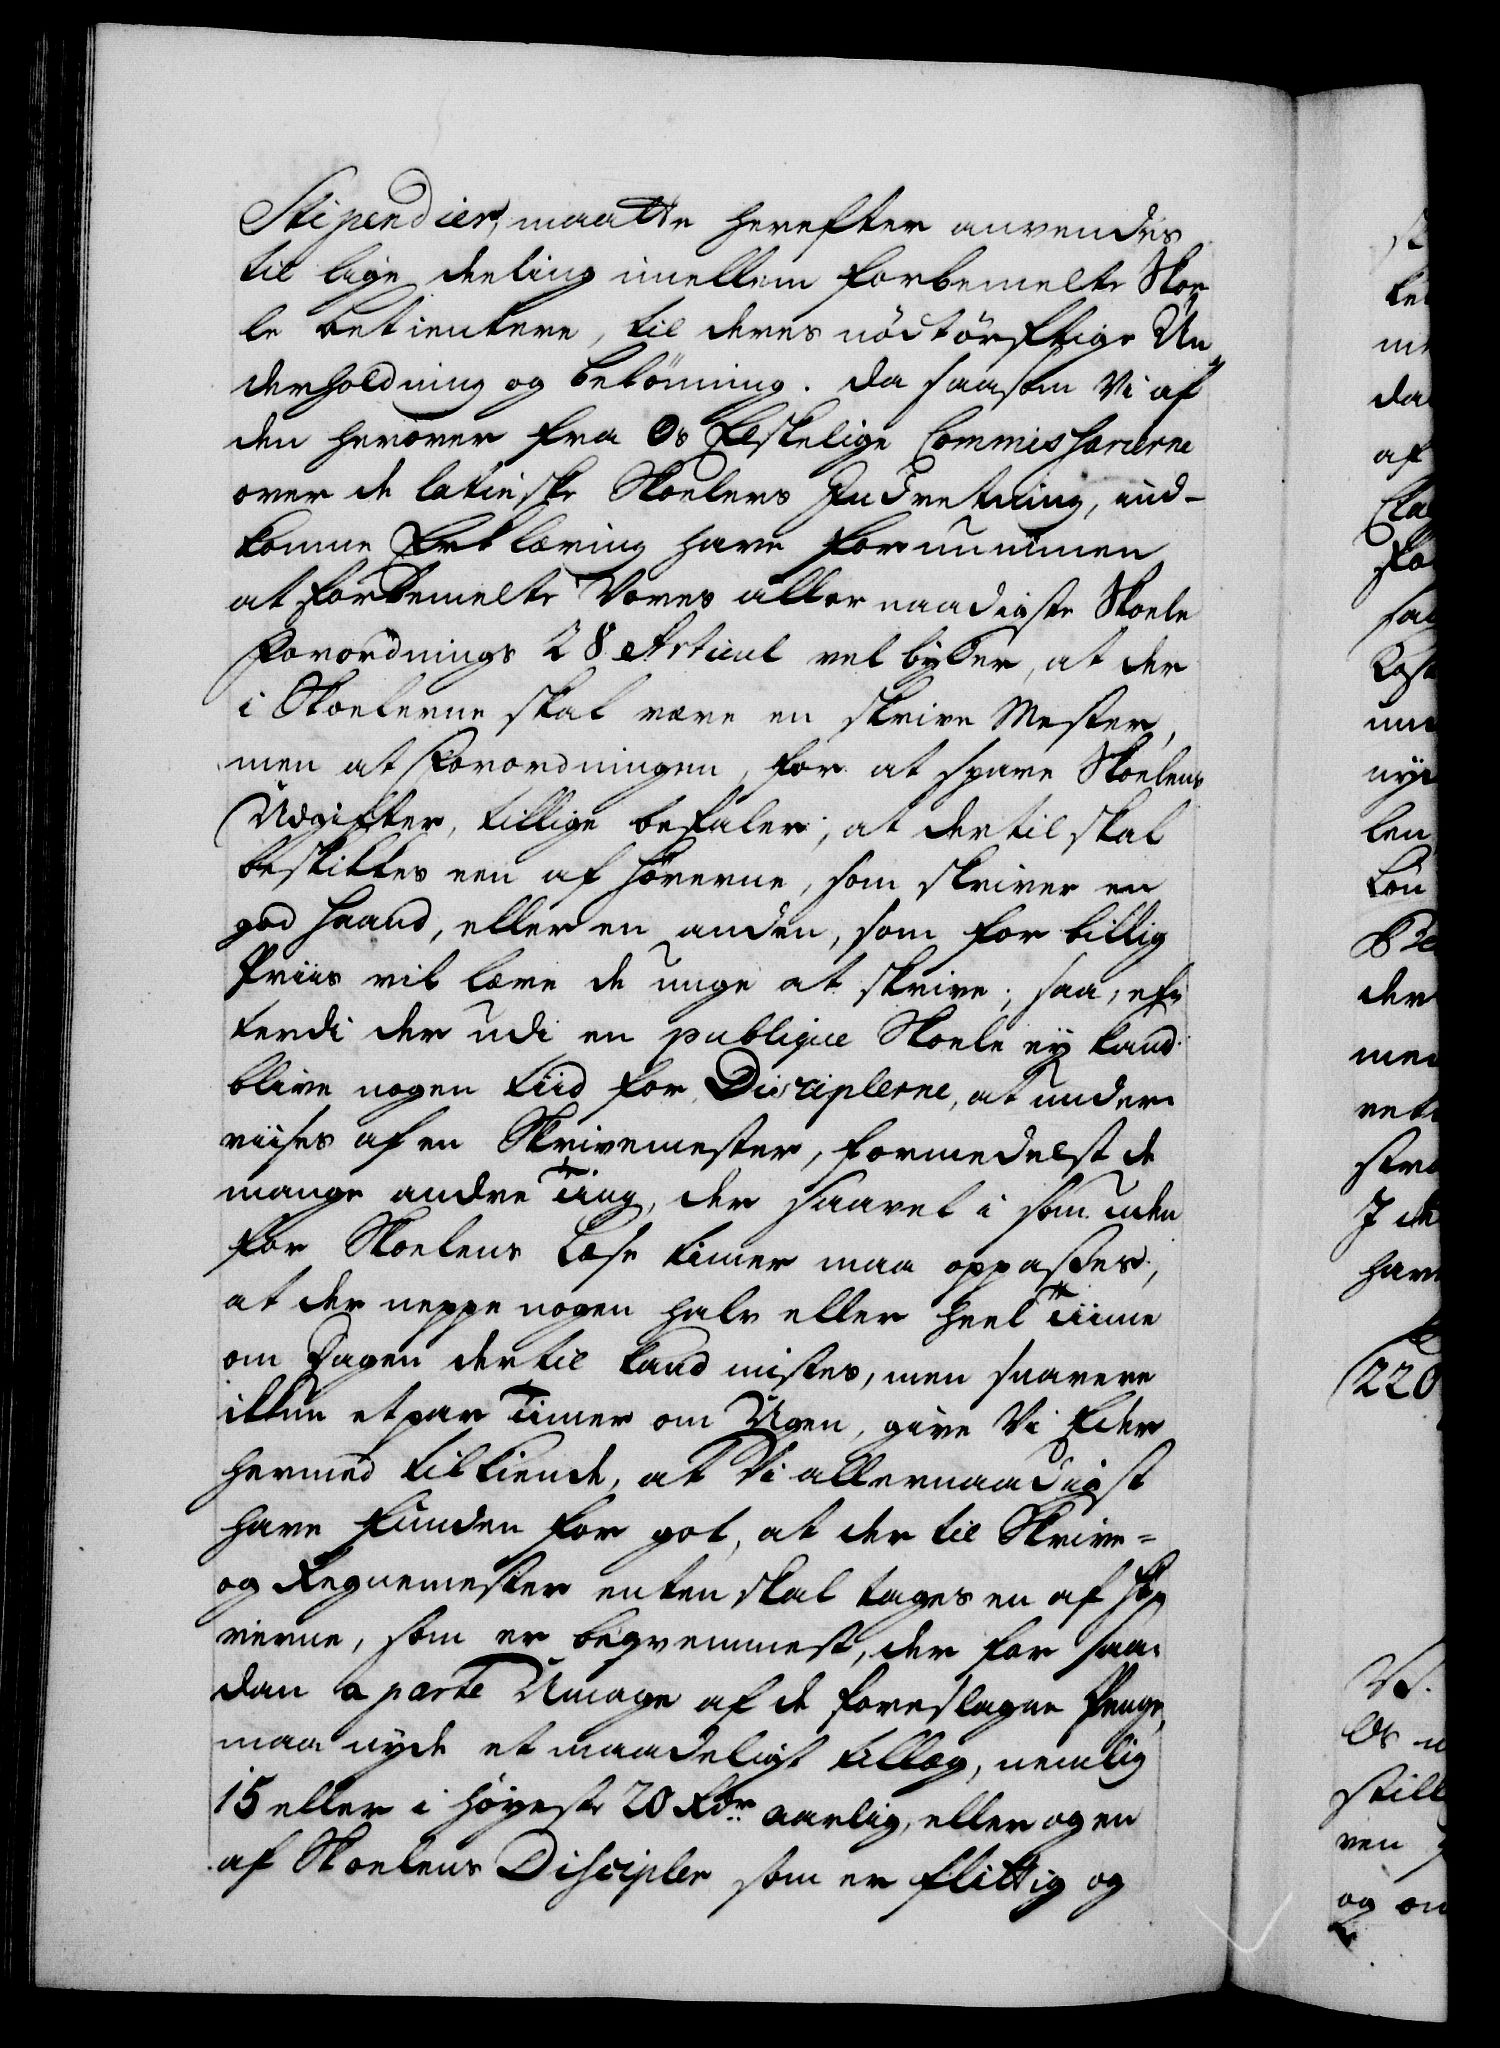 Stipendier, maatte herefter anvendes
til lige deeling imellem forbemelte Skoe
le betientere, til deres nødtørftige Un
derholdning og belønning. Da saasom Vi af
den herover fra Os Elskelige Commissarierne
over de latinske Skoelers Indretning, ind-
komne Erklæring have fornummen
at forbemelte Vores allernaadigste Skoele
Forordnings 28 Articul vel byder, at der
i Skoelerne skal være en skrive Mester,
men at Forordningen, for at spare Skoelens
Udgifter, tillige befaler, at dertil skal
beskikkes een af Hørerne, som skriver en
god Haand, eller en anden, som for billig
Priis vil lære de unge at skrive; saa, ef
terdi der udi en publique Skoele ey kand
blive nogen tiid for Disciplerne, at under
viises af en Skrivemester, formedelst de
mange andre Ting, der saavel i som uden
for Skoelens Læse timer maa oppasses,
at der neppe nogen halv eller heel Tiime
om Dagen dertil kand mistes, men snarere
ikkun et par Timer om Ugen, give Vi Eder
hermed tilkiende, at Vi allernaadigst
have funden for got, at der til Skrive=
og Regnemester enten skal tages en af Hø
rerne, som er beqvemmest, der for saa-
dan a parte Umage af de foreslagne Penge,
maa nyde et maadeligt tillæg, nemlig
15 eller i høyeste 20 Rdr aarlig, eller og en
af Skoelens Discipler som er flittig og